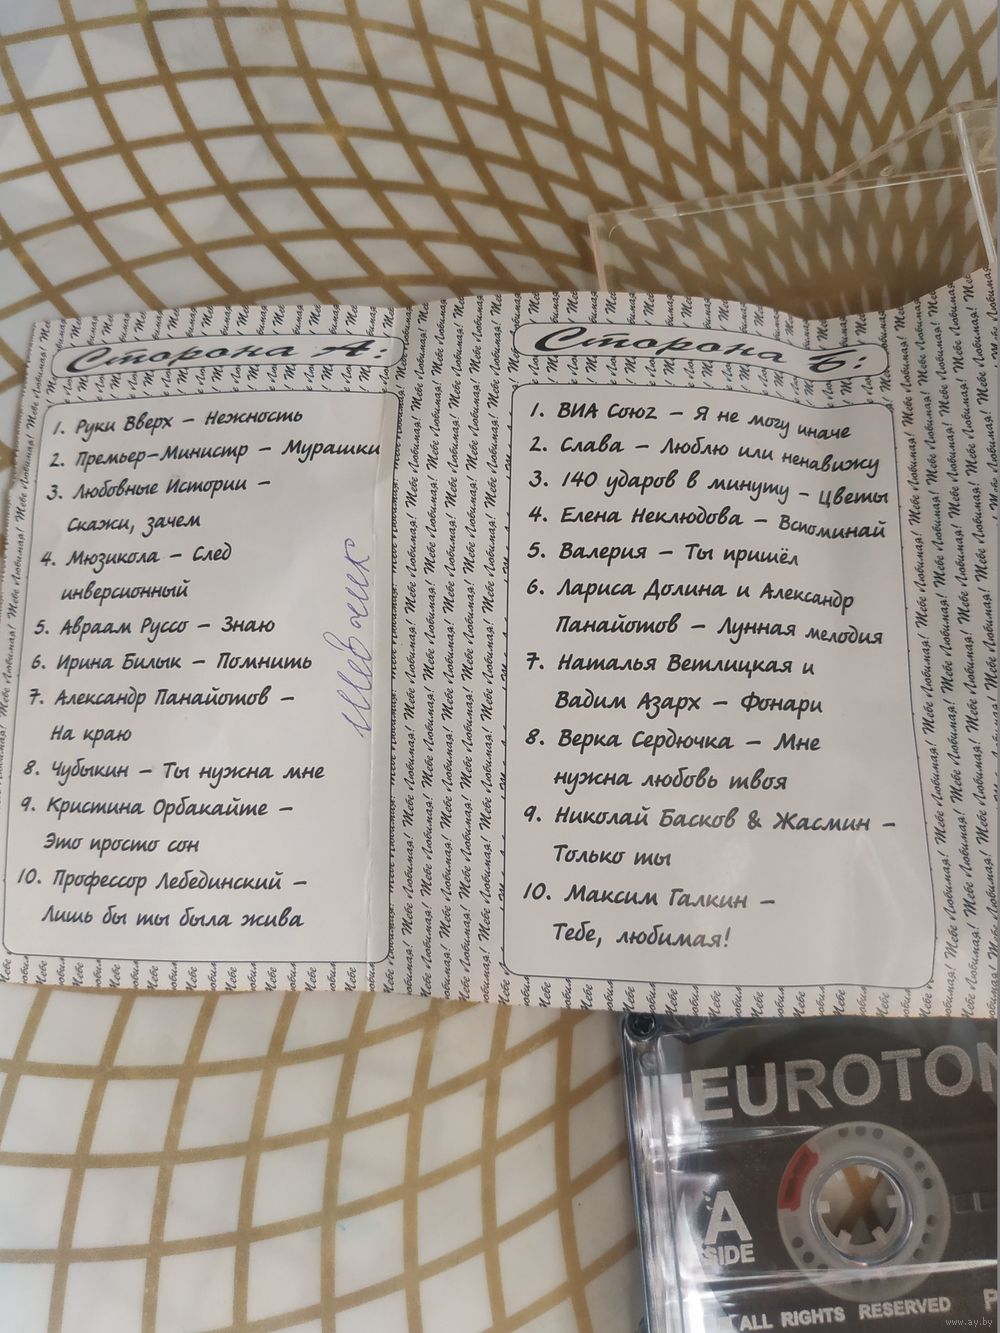 Сторона А:
1. Руки Вверх – Нежность
2. Премьер-Министр – Мурашки
3. Любовные Истории –
Скажи, зачем
4. Мюзикола – След
инверсионный
5. Авраам Руссо – Знаю
6. Ирина Билык – Помнить
7. Александр Панайотов –
На краю
8. Чубыкин – Ты нужна мне
9. Кристина Орбакайте –
Это просто сон
10. Профессор Лебединский –
Лишь бы ты была жива
Тебе Любимая!
Сторона Б:
1. ВИА Союz – Я не могу иначе
2. Слава – Люблю или ненавижу
3. 140 ударов в минуту – Цветы
4. Елена Неклюдова – Вспоминай
5. Валерия – Ты пришёл
6. Лариса Долина и Александр
Панайотов – Лунная мелодия
7. Наталья Ветлицкая и
Вадим Азарх – Фонари
8. Верка Сердючка – Мне
нужна любовь твоя
9. Николай Басков & Жасмин –
Только ты
10. Максим Галкин –
Тебе, любимая!
EUROTON
A
SIDE
ALL RIGHTS RESERVED
www.ay.by